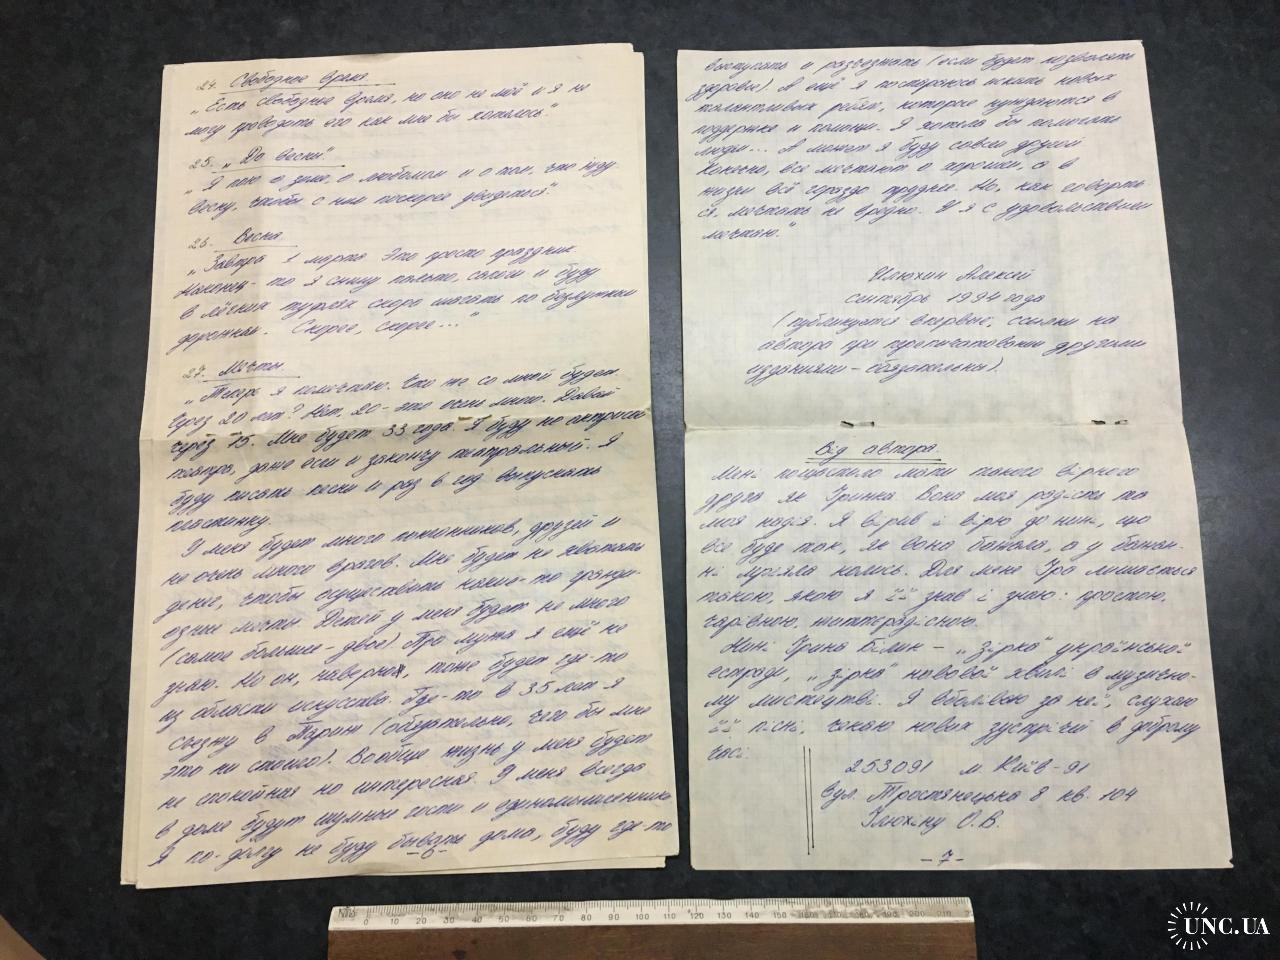 24. Свободное время.
„Есть свободное время, но оно не моё и я не
могу проводить его как мне бы хотелось."
25. „До весны".
„Я пою о зиме, о любимом и о том, что жду
весну, чтобы с ним поскорее увидеться."
26. Весна.
„Завтра 1 марта. Это просто праздник.
Наконец-то я сниму пальто, сапоги и буду
в лёгких туфлях скоро шагать по безлужным
дорожкам. Скорее, скорее..."
27. Мечты.
„Теперь я помечтаю. Что же со мной будет
через 20 лет? Нет, 20 - это очень много. Давай
через 15. Мне будет 33 года. Я буду не актрисой
театра, даже если и закончу театральный. Я
буду писать песни и раз в год выпускать
пластинку.
У меня будет много поклонников, друзей и
не очень много врагов. Мне будет не хватать
денег, чтобы осуществить какие-то гранди-
озные мечты. Детей у меня будет не много
(самое большее - двое) Про мужа я ещё не
знаю. Но он, наверное, тоже будет где-то
из области искусства. Где-то в 35 лет я
съезжу в Париж (обязательно, чего бы мне
это ни стоило). Вообще жизнь у меня будет
не спокойная но интересная. У меня всегда
в доме будут шумные гости и единомышленники
Я по-долгу не буду бывать дома, буду где-то
- 6 -
выступать и разъезжать (если будет позволять
здоровье). А ещё я постараюсь искать новых
талантливых ребят, которые нуждаются в
поддержке и помощи. Я хотела бы помогать
людям... А может я буду совсем другой
Конечно, все мечтают о хорошем, а в
жизни всё гораздо труднее. Но, как говорит-
ся, мечтать не вредно. И я с удовольствием
мечтаю."
Илюхин Алексей
сентябрь 1994 года
(публикуется впервые, ссылки на
автора при перепечатовании другими
изданиями - обязательны).
Від автора.
Мені пощастило мати такого вірного
друга як Іринка. Вона моя радість та
моя надія. Я вірив і вірю до нині, що
все буде так, як вона бажала, а у бажан-
ні мріяла колись. Для мене Іра лишається
такою, якою я її знав і знаю: простою,
чарівною, життєрадісною.
Нині Ірина Білик - „зірка" української
естради, „зірка" нової хвилі в музично-
му мистецтві. Я вболіваю за неї, слухаю
її пісні, чекаю нових зустрічей в доброму
часі.
253091 м. Київ-91
вул. Тростянецька 8 кв. 104
Ілюхіну О.В.
- 7 -
0 10 20 30 40 50 60 70 80 90 100 110 120 130 140 150 160 170 180 190 200 210
UNC.UA